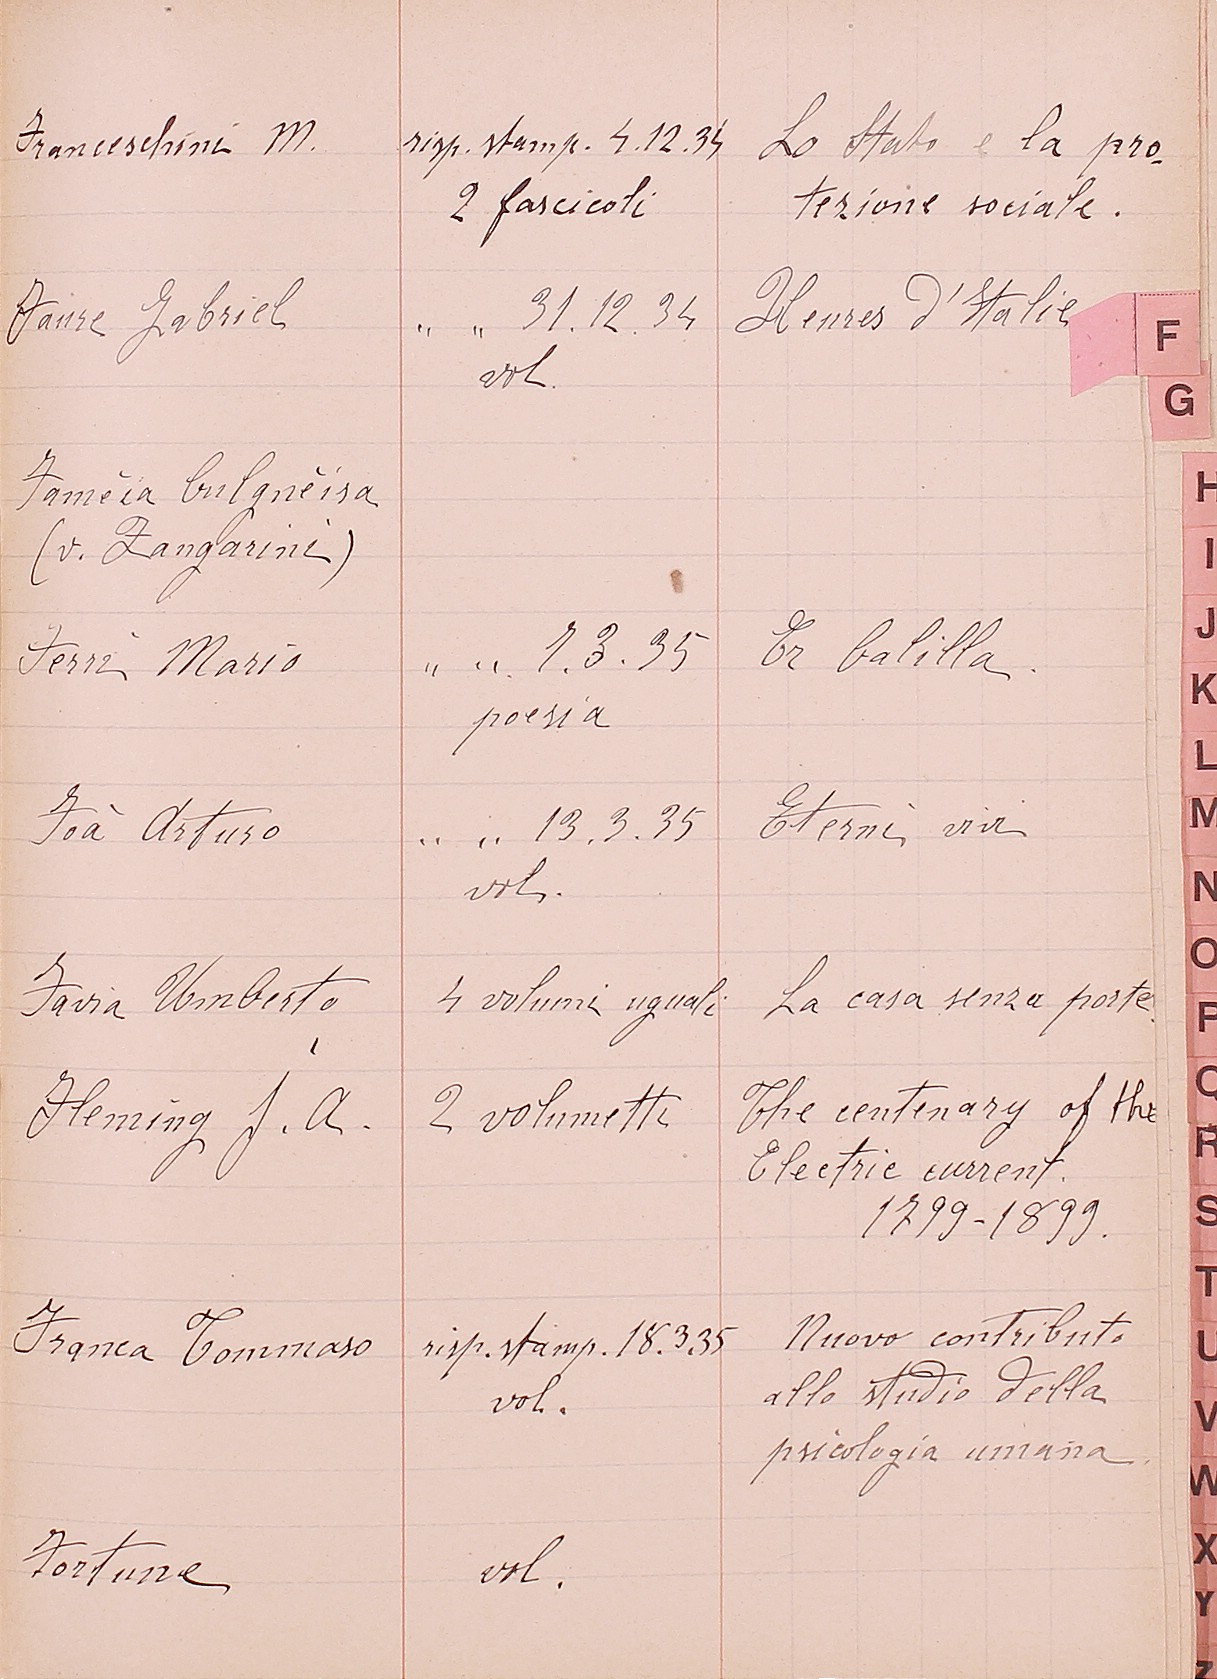 Franceschini M. risp. stamp. 4.12.34 Lo Stato e la pro-
2 fascicoli tezione sociale.
Faure Gabriel " " 31.12.34 Heures d'Italie
vol.
Famèia bulgnèisa
(v. Zangarini)
Ferri Mario " " 7.3.35 Er balilla.
poesia
Foà Arturo " " 13.3.35 Eterni vivi
vol.
Favia Umberto 4 volumi uguali La casa senza porte.
Fleming J. A. 2 volumetti The centenary of the
Electric current.
1799-1899.
Franca Tommaso risp. stamp. 18.3.35 Nuovo contributo
vol. allo studio della
psicologia umana.
Fortune vol.
F
G
H
I
J
K
L
M
N
O
P
Q
R
S
T
U
V
W
X
Y
Z